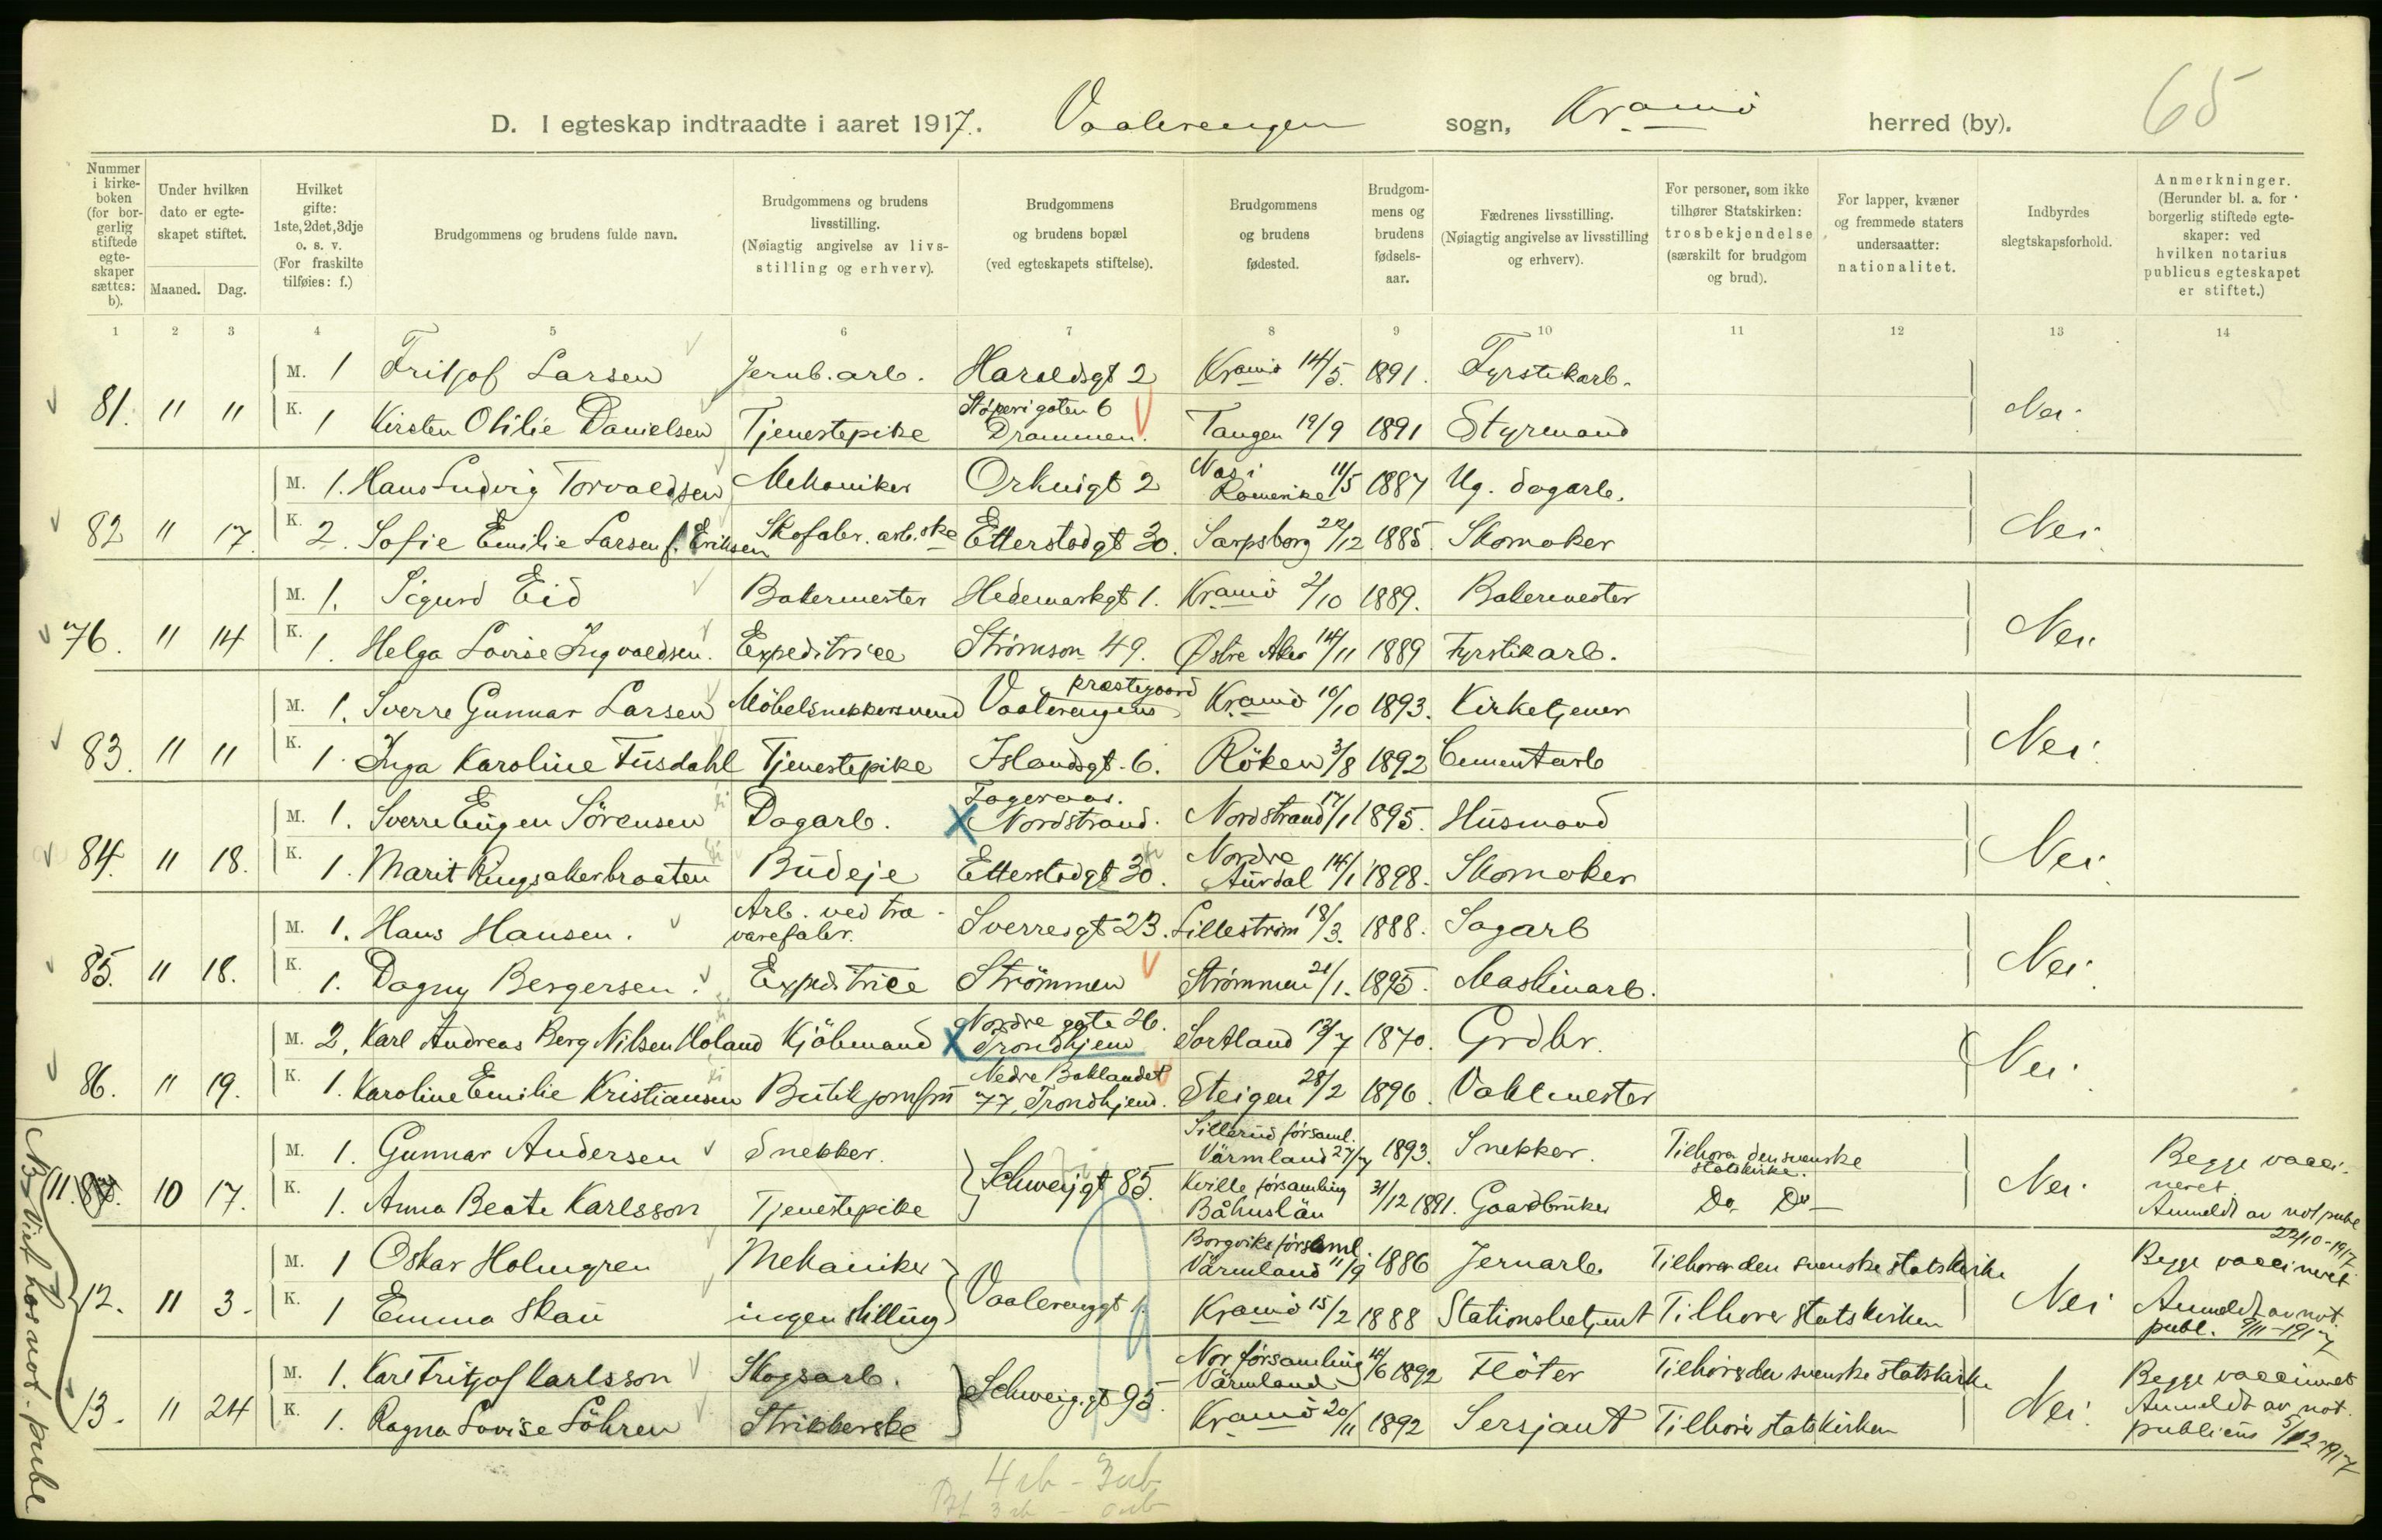 65
D. I egteskap indtraadte i aaret 1917. Vaalerengen sogn, Kr.ania herred (by).
Nummer i kirke-boken (for bor-gerlig stiftede egte-skaper sættes: b).
Under hvilken dato er egte-skapet stiftet.
Maaned. Dag.
Hvilket gifte: 1ste, 2det, 3dje o. s. v. (For fraskilte tilføies: f.)
Brudgommens og brudens fulde navn.
Brudgommens og brudens livsstilling. (Nøiagtig angivelse av livs-stilling og erhverv).
Brudgommens og brudens bopæl (ved egteskapets stiftelse).
Brudgommens og brudens fødested.
Brudgom-mens og brudens fødsels-aar.
Fædrenes livsstilling. (Nøiagtig angivelse av livsstilling og erhverv).
For personer, som ikke tilhører Statskirken: trosbekjendelse (særskilt for brudgom og brud).
For lapper, kvæner og fremmede staters undersaatter: nationalitet.
Indbyrdes slegtskapsforhold.
Anmerkninger. (Herunder bl. a. for borgerlig stiftede egte-skaper: ved hvilken notarius publicus egteskapet er stiftet.)
1 2 3 4 5 6 7 8 9 10 11 12 13 14
M. 1 Fritjof Larsen Jernb.arb. Haraldsgt 2 Kr.ania 14/5. 1891. Fyrstikarb.
81. " " K. 1 Kirsten Otilie Danielsen Tjenestepike Støperigaten 6 Drammen. Tangen 19/9 1891 Styrmand Nei.
M. 1. Hans Ludvig Torvaldsen Mekaniker Orknigt 2 Nas i Romerike 11/5 1887 Ug. dagarb.
82 " 17. K. 2. Sofie Emilie Larsen f. Eriksen Skofabr. arb.ske Etterstadgt 30. Sarpsborg 22/12 1885. Skomaker Nei.
M. 1. Sigurd Eid Bakermester Hedemarkgt 1. Kr.ania 2/10 1889. Bakermester
76. " 14 K. 1. Helga Lovise Ingvaldsen. Expeditrice Strømsv. 49. Østre Aker 14/11 1889 Fyrstikarb. Nei.
M. 1. Sverre Gunnar Larsen Möbelsnekkersvend Vaalerengens prestegaard Kr.ania 10/10 1893. Kirketjener
83. " " K. 1. Inga Karoline Tusdahl Tjenestepike Islandsgt. 6. Röken 3/8 1892 Cementarb Nei.
M. 1. Sverre Eugen Sörensen Dagarb. Fageraas. Nordstrand. Nordstrand 17/1 1895. Husmand
84. " 18. K. 1. Marit Ringsakerbraaten Budeje Etterstadgt 30. Nordre Aurdal 14/1 1898. Skomaker Nei.
M. 1. Hans Hansen. Arb. ved tra-varefabr. Sverresgt 23. Lillestrøm 18/3. 1888. Sagarb
85. " 18. K. 1. Dagny Bergersen. Expeditrice Strömmen Strømmen 21/1. 1895. Maskinarb. Nei.
M. 2. Karl Andreas Berg Nilsen Holand Kjöbmand Nordre gate 26. Trondhjem Sortland 13/7 1870. Grdbr.
86. " 19. K. 1. Karoline Emilie Kristiansen Butikjomfru Nedre Baklandet 77, Trondhjem. Steigen 28/2 1896. Vaktmester Nei.
M. 1. Gunnar Andersen Snekker. Schweigt 85. Sillerud församl. Värmland 27/7 1893. Snekker. Tilhører den svenske statskirke. Begge vacci-neret
11. 10 17. K. 1. Anna Beate Karlsson Tjenestepike Kville församling Båhuslän 31/12 1891. Gaardbruker Do Do Nei. Anmeldt av not publ 22/10-1917.
M. 1 Oskar Holmgren Mekaniker Vaalerenggt Borgviks församl. Värmland 11/9 1886 Jernarb. Tilhører den svenske statskirke Begge vaccineret
12. 11 3. K. 1 Emma Skau ingen stilling Kr.ania 15/2 1888 Stationsbetjent Tilhører statskirken Nei Anmeldt av not. publ. 9/11-1917
M. 1. Karl Fritjof Karlsson Skogsarb. Schweig.gt 95. Nor församling Värmland 1892 Flöter Tilhører den svenske statskirke Begge vaccineret
13. 11 24 K. 1. Ragna Lovise Löhren Strikkerske Kr.ania 20/11 1892 Sersjant Tilhører statskirken Nei. Anmeldt av not. publicus 5/12-1917
NB. Viet hos not. publ.